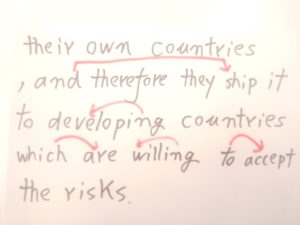 their own countries
, and therefore they ship it
to developing countries
which are willing to accept
the risks.